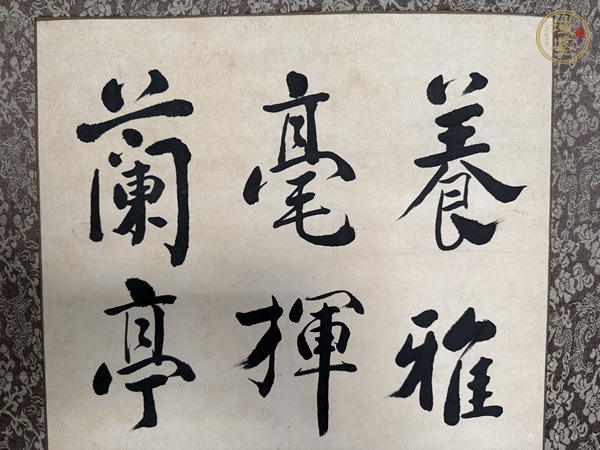 養雅
毫揮
蘭亭